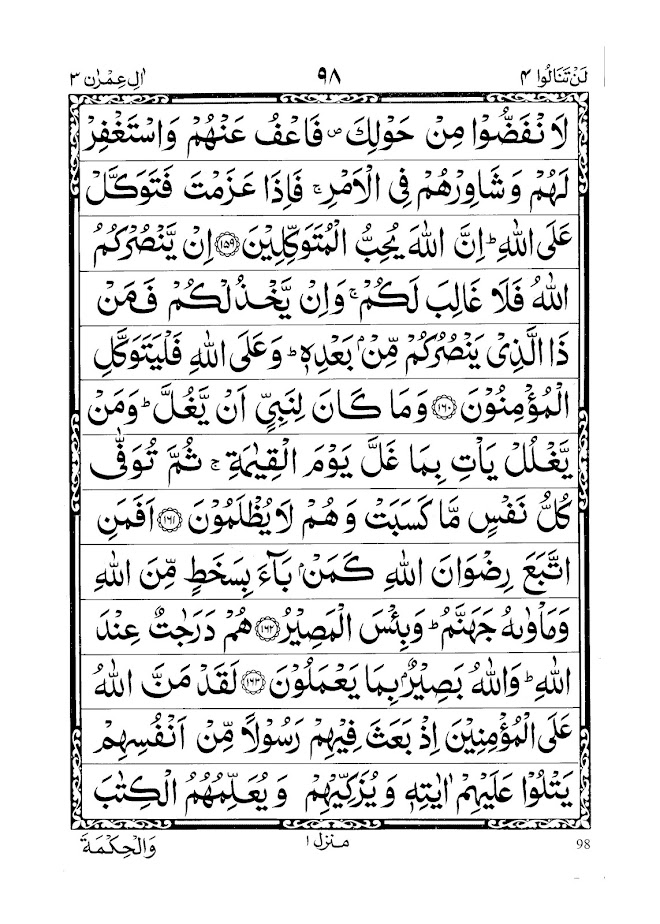 لَنْ تَنَالُوا ٤ ٩٨ اٰلِ عِمْرٰن ٣
لَا نْفَضُّوْا مِنْ حَوْلِكَ ۪ فَاعْفُ عَنْهُمْ وَاسْتَغْفِرْ
لَهُمْ وَشَاوِرْهُمْ فِی الْاَمْرِ ۚ فَاِذَا عَزَمْتَ فَتَوَكَّلْ
عَلَی اللّٰهِ ؕ اِنَّ اللّٰهَ یُحِبُّ الْمُتَوَكِّلِیْنَ ۝١٥٩ اِنْ یَّنْصُرْكُمُ
اللّٰهُ فَلَا غَالِبَ لَكُمْ ۚ وَاِنْ یَّخْذُلْكُمْ فَمَنْ
ذَا الَّذِیْ یَنْصُرُكُمْ مِّنْۢ بَعْدِهٖ ؕ وَعَلَی اللّٰهِ فَلْیَتَوَكَّلِ
الْمُؤْمِنُوْنَ ۝١٦٠ وَمَا كَانَ لِنَبِیٍّ اَنْ یَّغُلَّ ؕ وَمَنْ
یَّغْلُلْ یَاْتِ بِمَا غَلَّ یَوْمَ الْقِیٰمَةِ ۚ ثُمَّ تُوَفّٰی
كُلُّ نَفْسٍ مَّا كَسَبَتْ وَهُمْ لَا یُظْلَمُوْنَ ۝١٦١ اَفَمَنِ
اتَّبَعَ رِضْوَانَ اللّٰهِ كَمَنْۢ بَآءَ بِسَخَطٍ مِّنَ اللّٰهِ
وَمَاْوٰىهُ جَهَنَّمُ ؕ وَبِئْسَ الْمَصِیْرُ ۝١٦٢ هُمْ دَرَجٰتٌ عِنْدَ
اللّٰهِ ؕ وَاللّٰهُ بَصِیْرٌۢ بِمَا یَعْمَلُوْنَ ۝١٦٣ لَقَدْ مَنَّ اللّٰهُ
عَلَی الْمُؤْمِنِیْنَ اِذْ بَعَثَ فِیْهِمْ رَسُوْلًا مِّنْ اَنْفُسِهِمْ
یَتْلُوْا عَلَیْهِمْ اٰیٰتِهٖ وَیُزَكِّیْهِمْ وَیُعَلِّمُهُمُ الْكِتٰبَ
98 منزل ١ وَالْحِكْمَةَ